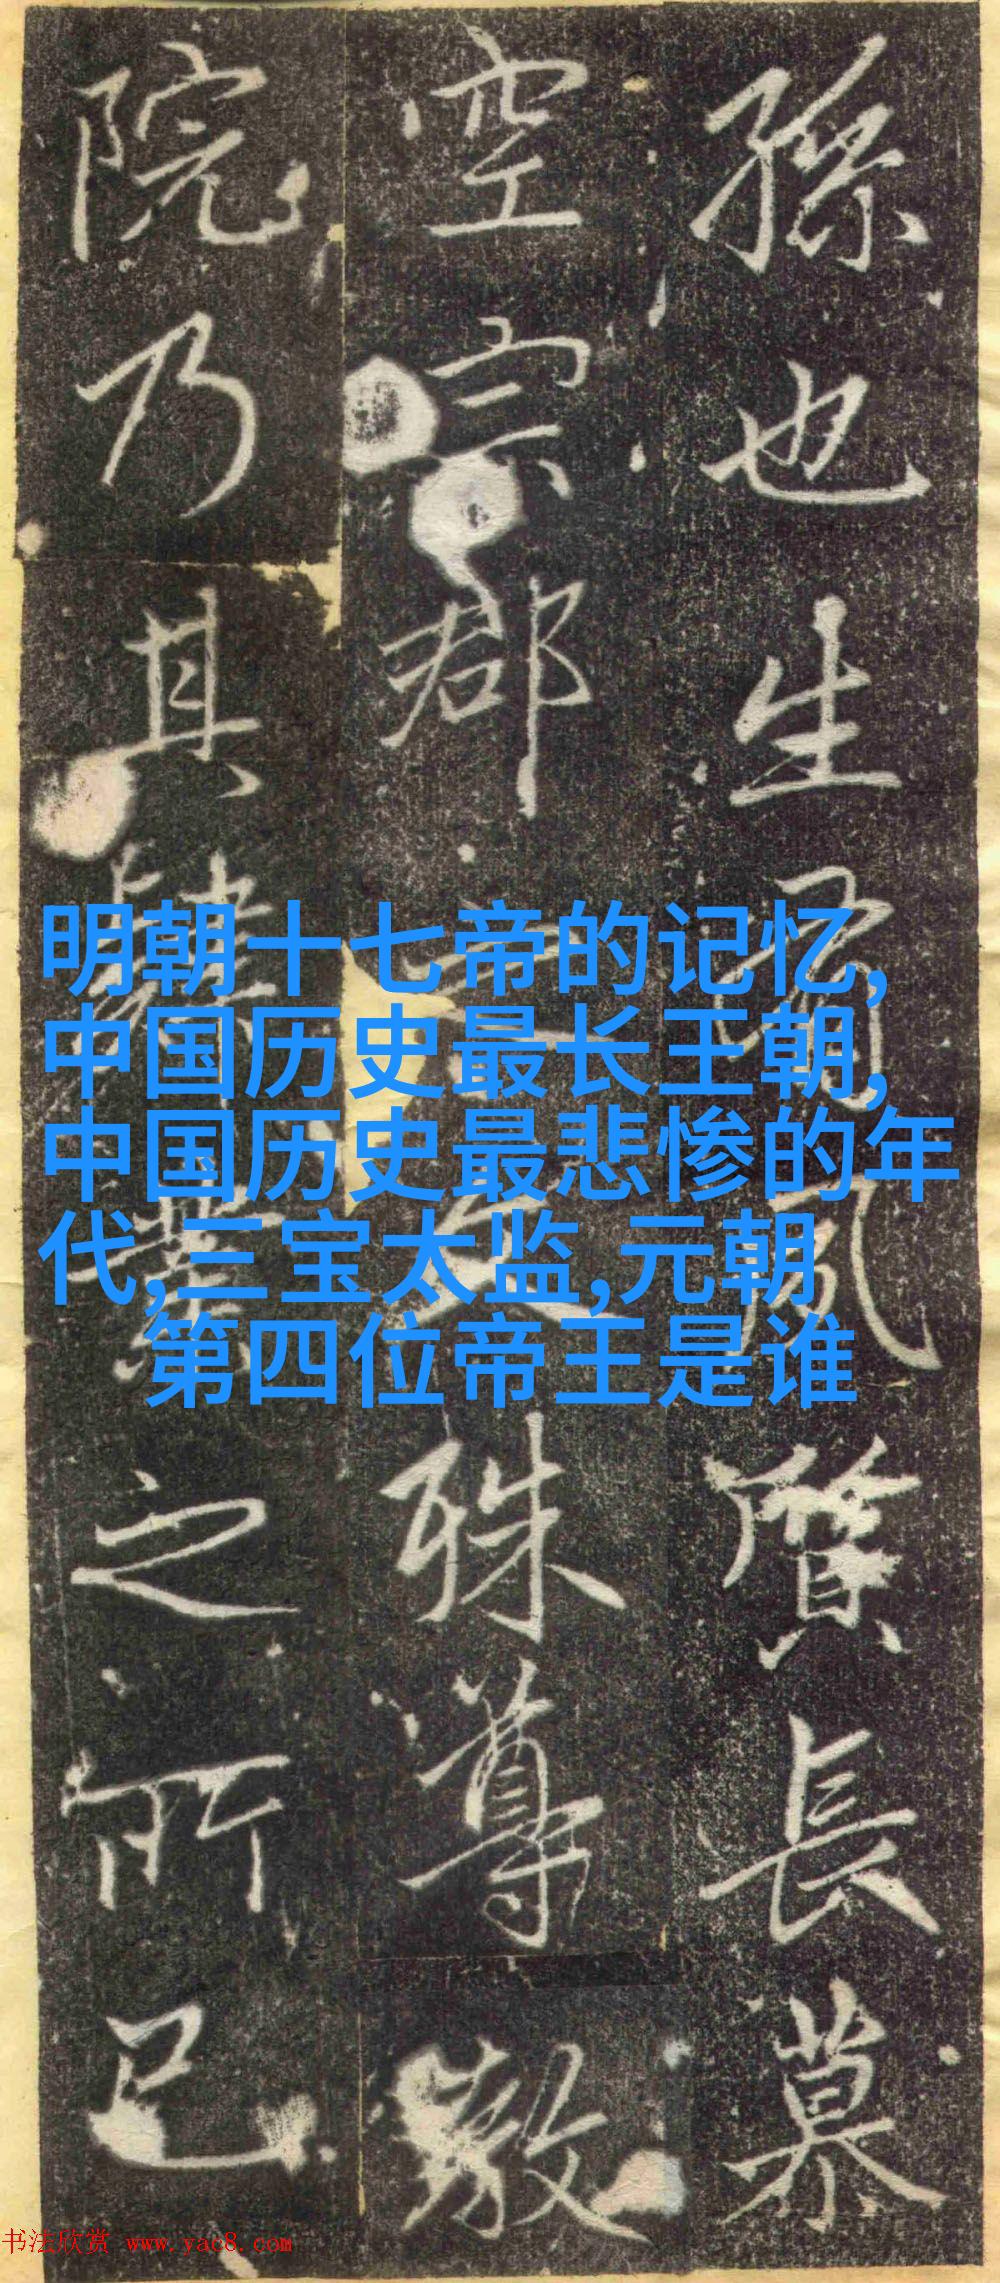 孫也生風質長慕
空宗郡殊尊敬
院乃其之所已
明朝十七帝的记忆,
中国历史最长王朝,
中国历史最悲惨的年
代,三宝太监,元朝
第四位帝王是谁
书法欣赏 www.yac8.com